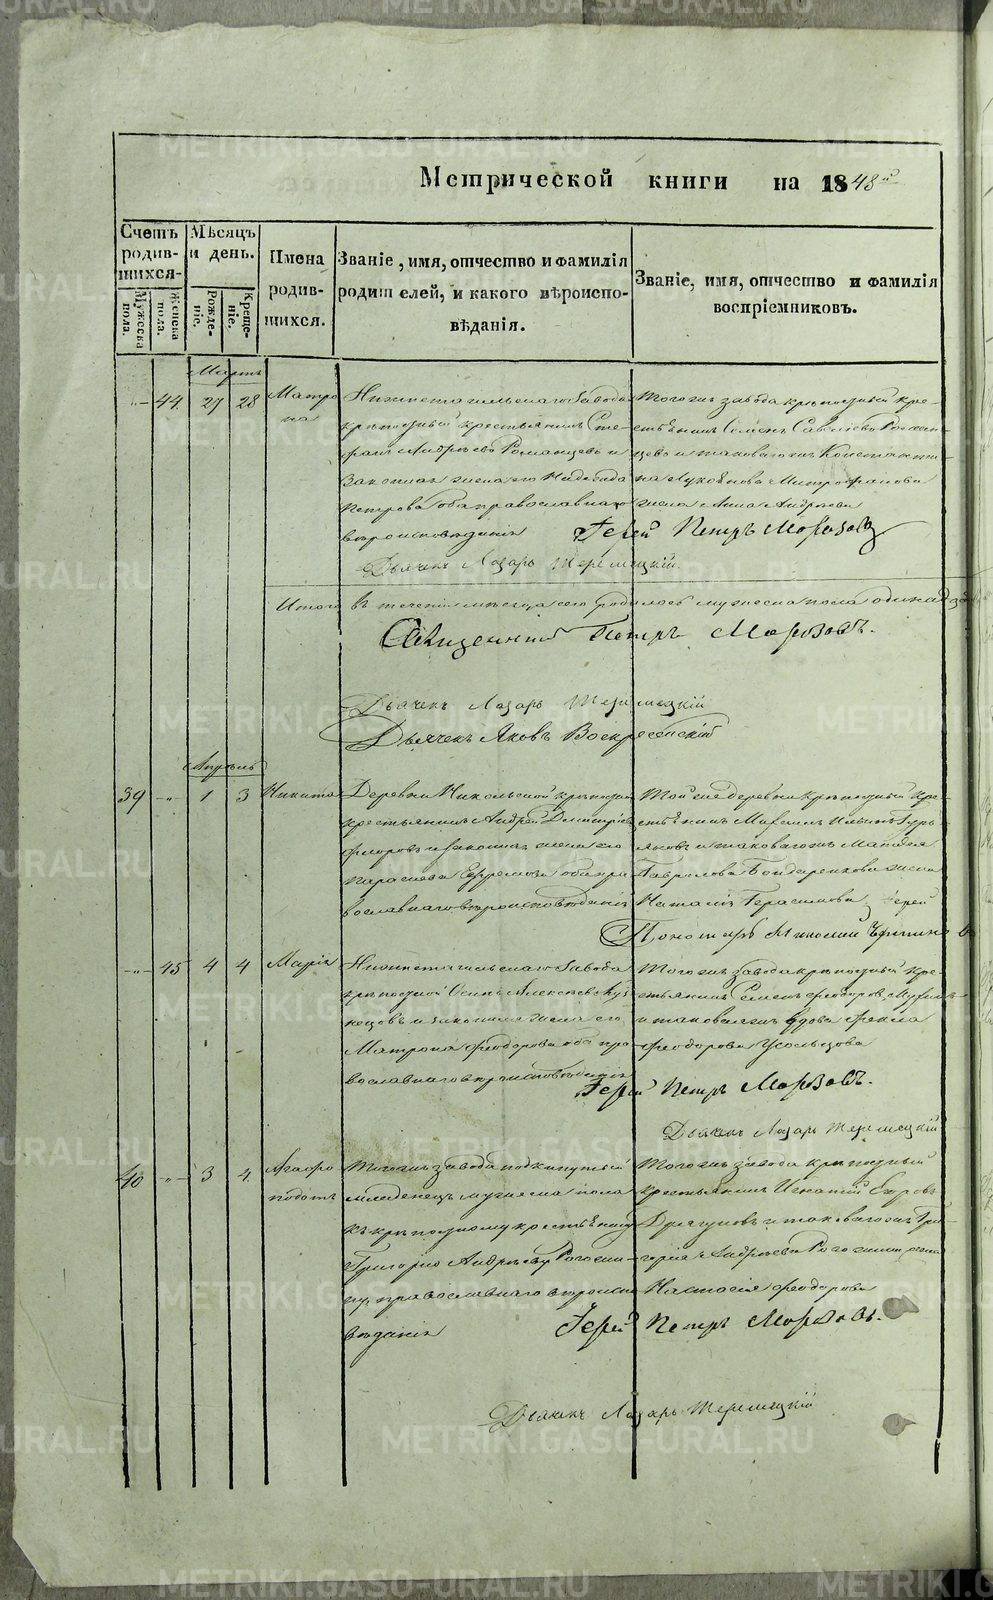 Метрической книги на 1848й
Счетъ родившихся.
Мужеска пола.
Женска пола.
Мѣсяцъ и день.
Рожденіе.
Крещеніе.
Имена родившихся.
Званіе, имя, отчество и фамилія родителей, и какого вѣроисповѣданія.
Званіе, имя, отчество и фамилія воспріемниковъ.
Мартъ
-"- 44. 27 28
Матро
на
Нижнетагильскаго Завода
крѣпостный крестьянинъ Сте-
фанъ Андрѣевъ Романцевъ и
Законная жена его Надежда
Петрова оба православнаго
вѣроисповѣданія
Тогожъ завода крѣпостный кре-
стьянинъ Семенъ Савельевъ Роман-
цевъ и таковагожъ Константи-
на Митрофанова
жена Анна Андреева
Іерей Петръ Морозовъ
Дьячекъ Лазарь Теремецкій.
Итого въ теченіи мѣсяца сего родилось мужеска пола одинад
Священникъ Петръ Морозовъ.
Дьячекъ Лазарь Теремецкій
Дьячекъ Яковъ Воскресенскій
Апрѣль
39 -"- 1 3
Никита
Деревни Никольской крѣпостный
крестьянинъ Андрей Дмитріевъ
Флоровъ и законная жена его
Парасковья Ефремова оба пра-
вославнаго вѣроисповѣданія
Той же деревни крѣпостный кре-
стьянинъ Максимъ Гурь-
яновъ и таковагожъ Матвея
Гаврилова Бондаренкова жена
Наталія Герасимова Іерей
Пономарь Николай
-"- 45 4 4
Марія
Нижнетагильскаго Завода
крѣпостной Осипъ Алексѣевъ Куз-
нецовъ и законная жена его
Матрона Феодорова оба пра-
вославнаго вѣроисповѣданія
Тогожъ завода крѣпостный кре-
стьянинъ Семенъ Феодоровъ
и таковагожъ вдова Фекла
Феодорова Усольцова
Іерей Петръ Морозовъ.
Дьячекъ Лазарь Теремецкій
40 -"- 3 4.
Агафо
подъ
Тогожъ завода подкинутый
младенецъ мужеска пола
къ крѣпостному крестьянину
Григорію Андрѣеву Рогожи-
ну, православнаго вѣроиспо
вѣданія
Тогожъ завода крѣпостный
крестьянинъ Игнатій Егоровъ
Драгуновъ и таковагожъ Гри-
горія Андрѣева Рогожина жена
Настасія Феодорова
Іерей Петръ Морозовъ.
Дьячекъ Лазарь Теремецкій
METRIKI.GASO-URAL.RU